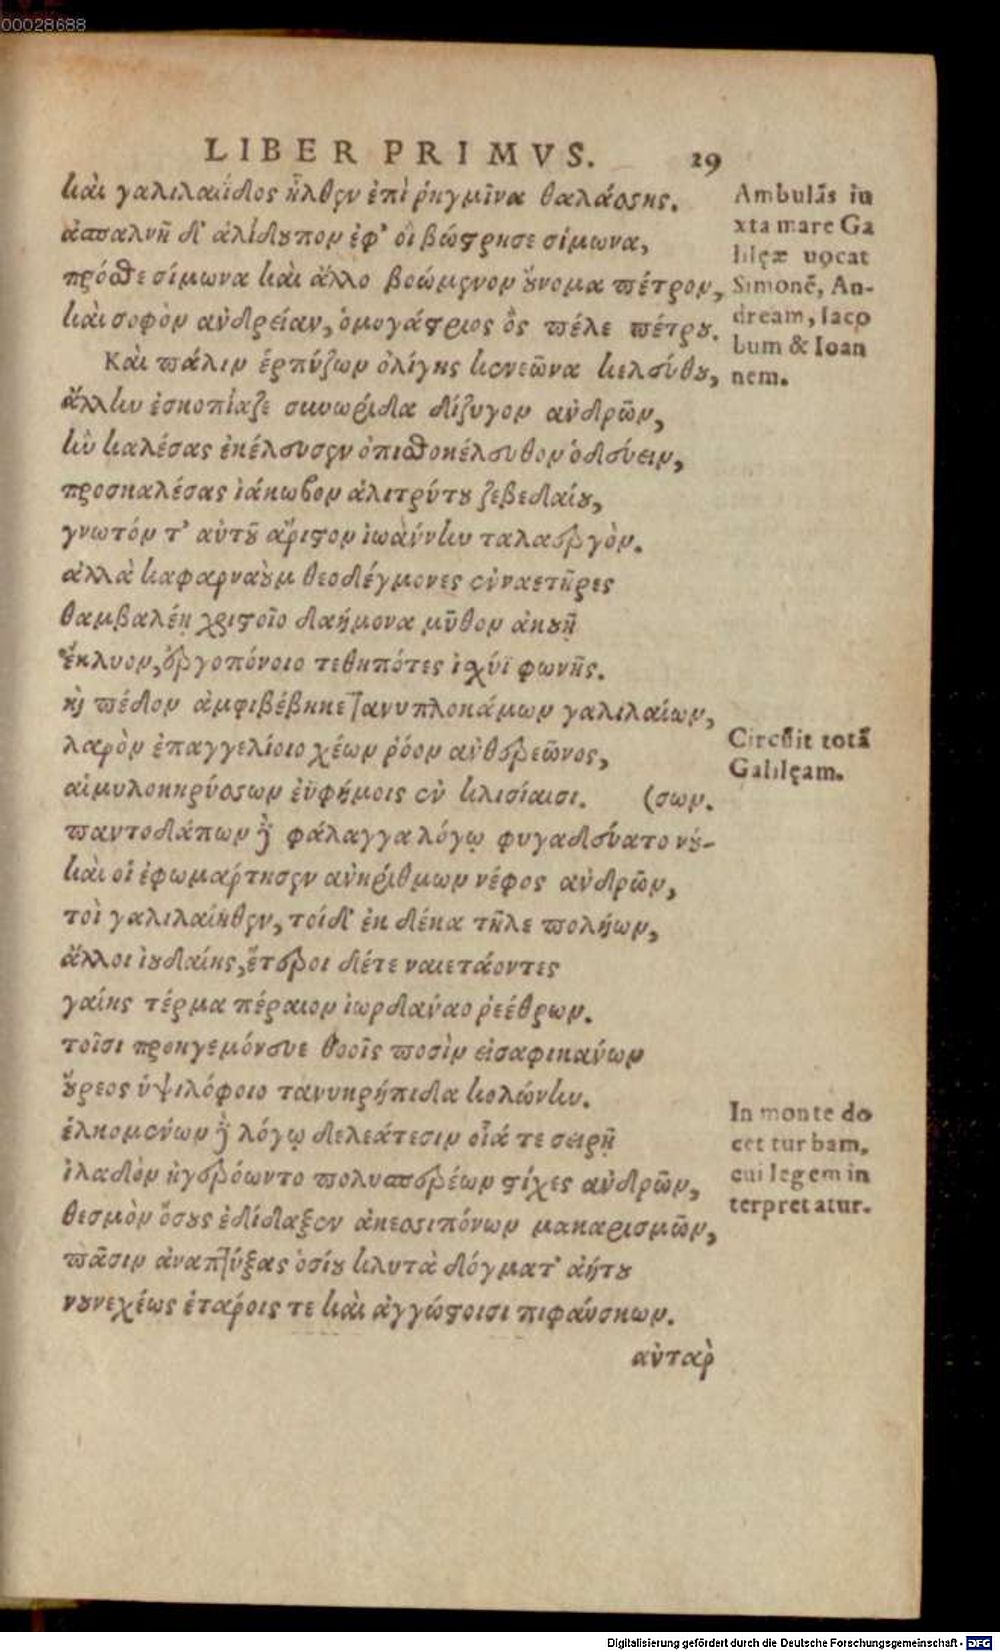 00028688
LIBER PRIMVS. 29
καὶ γαλιλαιΐδος ἦλθεν ἐπὶ ῥηγμῖνα θαλάσσης.
ἀσπαλνῆ δ' ἁλίδουπον ἐφ' οἱ βώστρησε σίμωνα,
πρόσθε σίμωνα καὶ ἄλλο βοώμενον οὔνομα πέτρον,
καὶ σοφὸν ἀνδρείαν, ὁμογάστριος ὃς πέλε πέτρου.
Καὶ πάλιν ἑρπύζων ὀλίγης κονεῶνα κελεύθου,
ἄλλην ἐσκοπίαζε συνωρίδα δίζυγον ἀνδρῶν,
ἣν καλέσας ἐκέλευσεν ὀπισθοκέλευθον ὁδεύειν,
προσκαλέσας ἰάκωβον ἁλιτρύτου ζεβεδαίου,
γνωτόν τ' αὐτοῦ ἄριστον ἰωάννην ταλαεργὸν.
ἀλλὰ καφαρναοὺμ θεοδέγμονες ἐνναετῆρες
θαμβαλέῃ χριστοῖο δαήμονα μῦθον ἀκουῇ
ἔκλυον, ἐργοπόνοιο τεθηπότες ἰσχύϊ φωνῆς.
καὶ πέδον ἀμφιβέβηκε τανυπλοκάμων γαλιλαίων,
λαρὸν ἐπαγγελίοιο χέων ῥόον ἀνθερεῶνος,
αἱμυλοκηρύσσων ἐϋφήμοις ἐν κλισίαισι. (σων.
παντοδάπων δὲ φάλαγγα λόγῳ φυγαδεύατο νού-
καὶ οἱ ἐφωμάρτησεν ἀνηρίθμων νέφος ἀνδρῶν,
τοὶ γαλιλαίηθεν, τοίδ' ἐκ δέκα τῆλε πολήων,
ἄλλοι ἰουδαίης, ἕτεροι δέ τε ναιετάοντες
γαίης τέρμα πέραιον ἰωρδάναο ῥεέθρων.
τοῖσι προηγεμόνευε θοοῖς ποσὶν εἰσαφικάνων
οὔρεος ὑψιλόφοιο τανυκρήπιδα κολώνην.
ἑλκομένων δὲ λόγῳ δελεάτεσιν οἷά τε σειρῇ
ἰλαδὸν ἠγερόωντο πολυσπερέων στίχες ἀνδρῶν,
θεσμὸν ὅσους ἐδίδαξεν ἀκεσσιπόνων μακαρισμῶν,
πᾶσιν ἀναπτύξας ὁσίου κλυτὰ δόγματ' ἀήτου
νουνεχέως ἑτάροις τε καὶ ἀγγώστοισι πιφαύσκων.
αὐτὰρ
Ambulãs iu
xta mare Ga
lilęæ uocat
Simonẽ, An-
dream, Iaco
bum & Ioan
nem.
Circũit totã
Galilęam.
In monte do
cet turbam,
cui legem in
terpretatur.
Digitalisierung gefördert durch die Deutsche Forschungsgemeinschaft - DFG